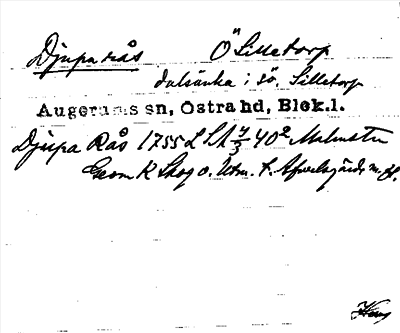 Djupa rås Ö Silletorp
dalsänka i sö. Silletorp
Augerums sn, Östra hd, Blek.l.
Djupa Rås 1755 LSA 7/3 40² Malmsten
Geom K Skog o. Utm. t. Afvelsgärde m. fl.